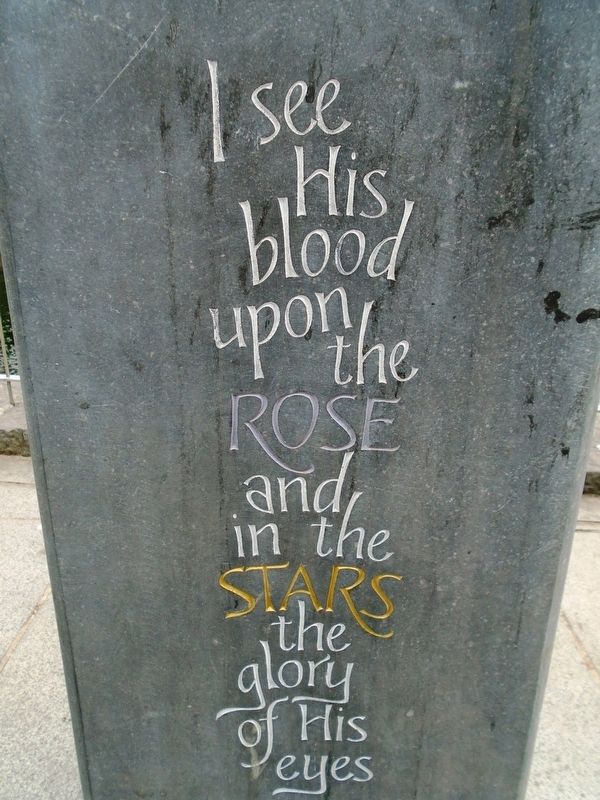 I see
His
blood
upon
the
ROSE
and
in the
STARS
the
glory
of His
eyes